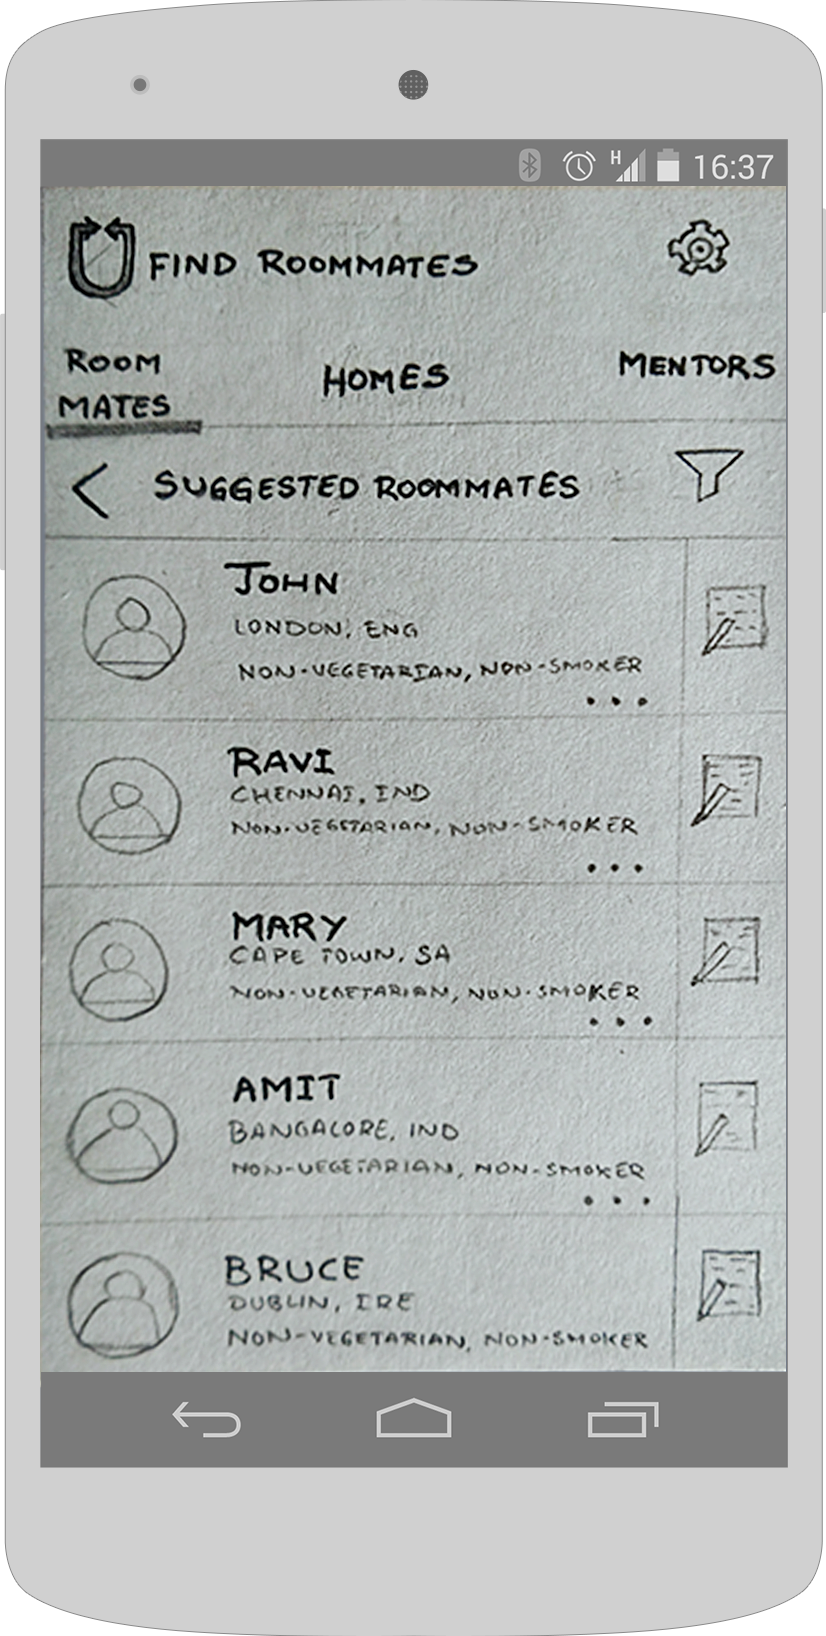 H
16:37
FIND ROOMMATES
ROOM
MATES
HOMES
MENTORS
SUGGESTED ROOMMATES
JOHN
LONDON, ENG
NON-VEGETARIAN, NON-SMOKER
...
RAVI
CHENNAI, IND
NON-VEGETARIAN, NON-SMOKER
...
MARY
CAPE TOWN, SA
NON-VEGETARIAN, NON-SMOKER
...
AMIT
BANGALORE, IND
NON-VEGETARIAN, NON-SMOKER
...
BRUCE
DUBLIN, IRE
NON-VEGETARIAN, NON-SMOKER